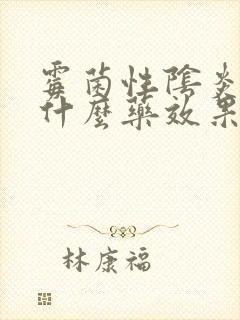 霉菌性陰炎
什麼藥效果
林康福